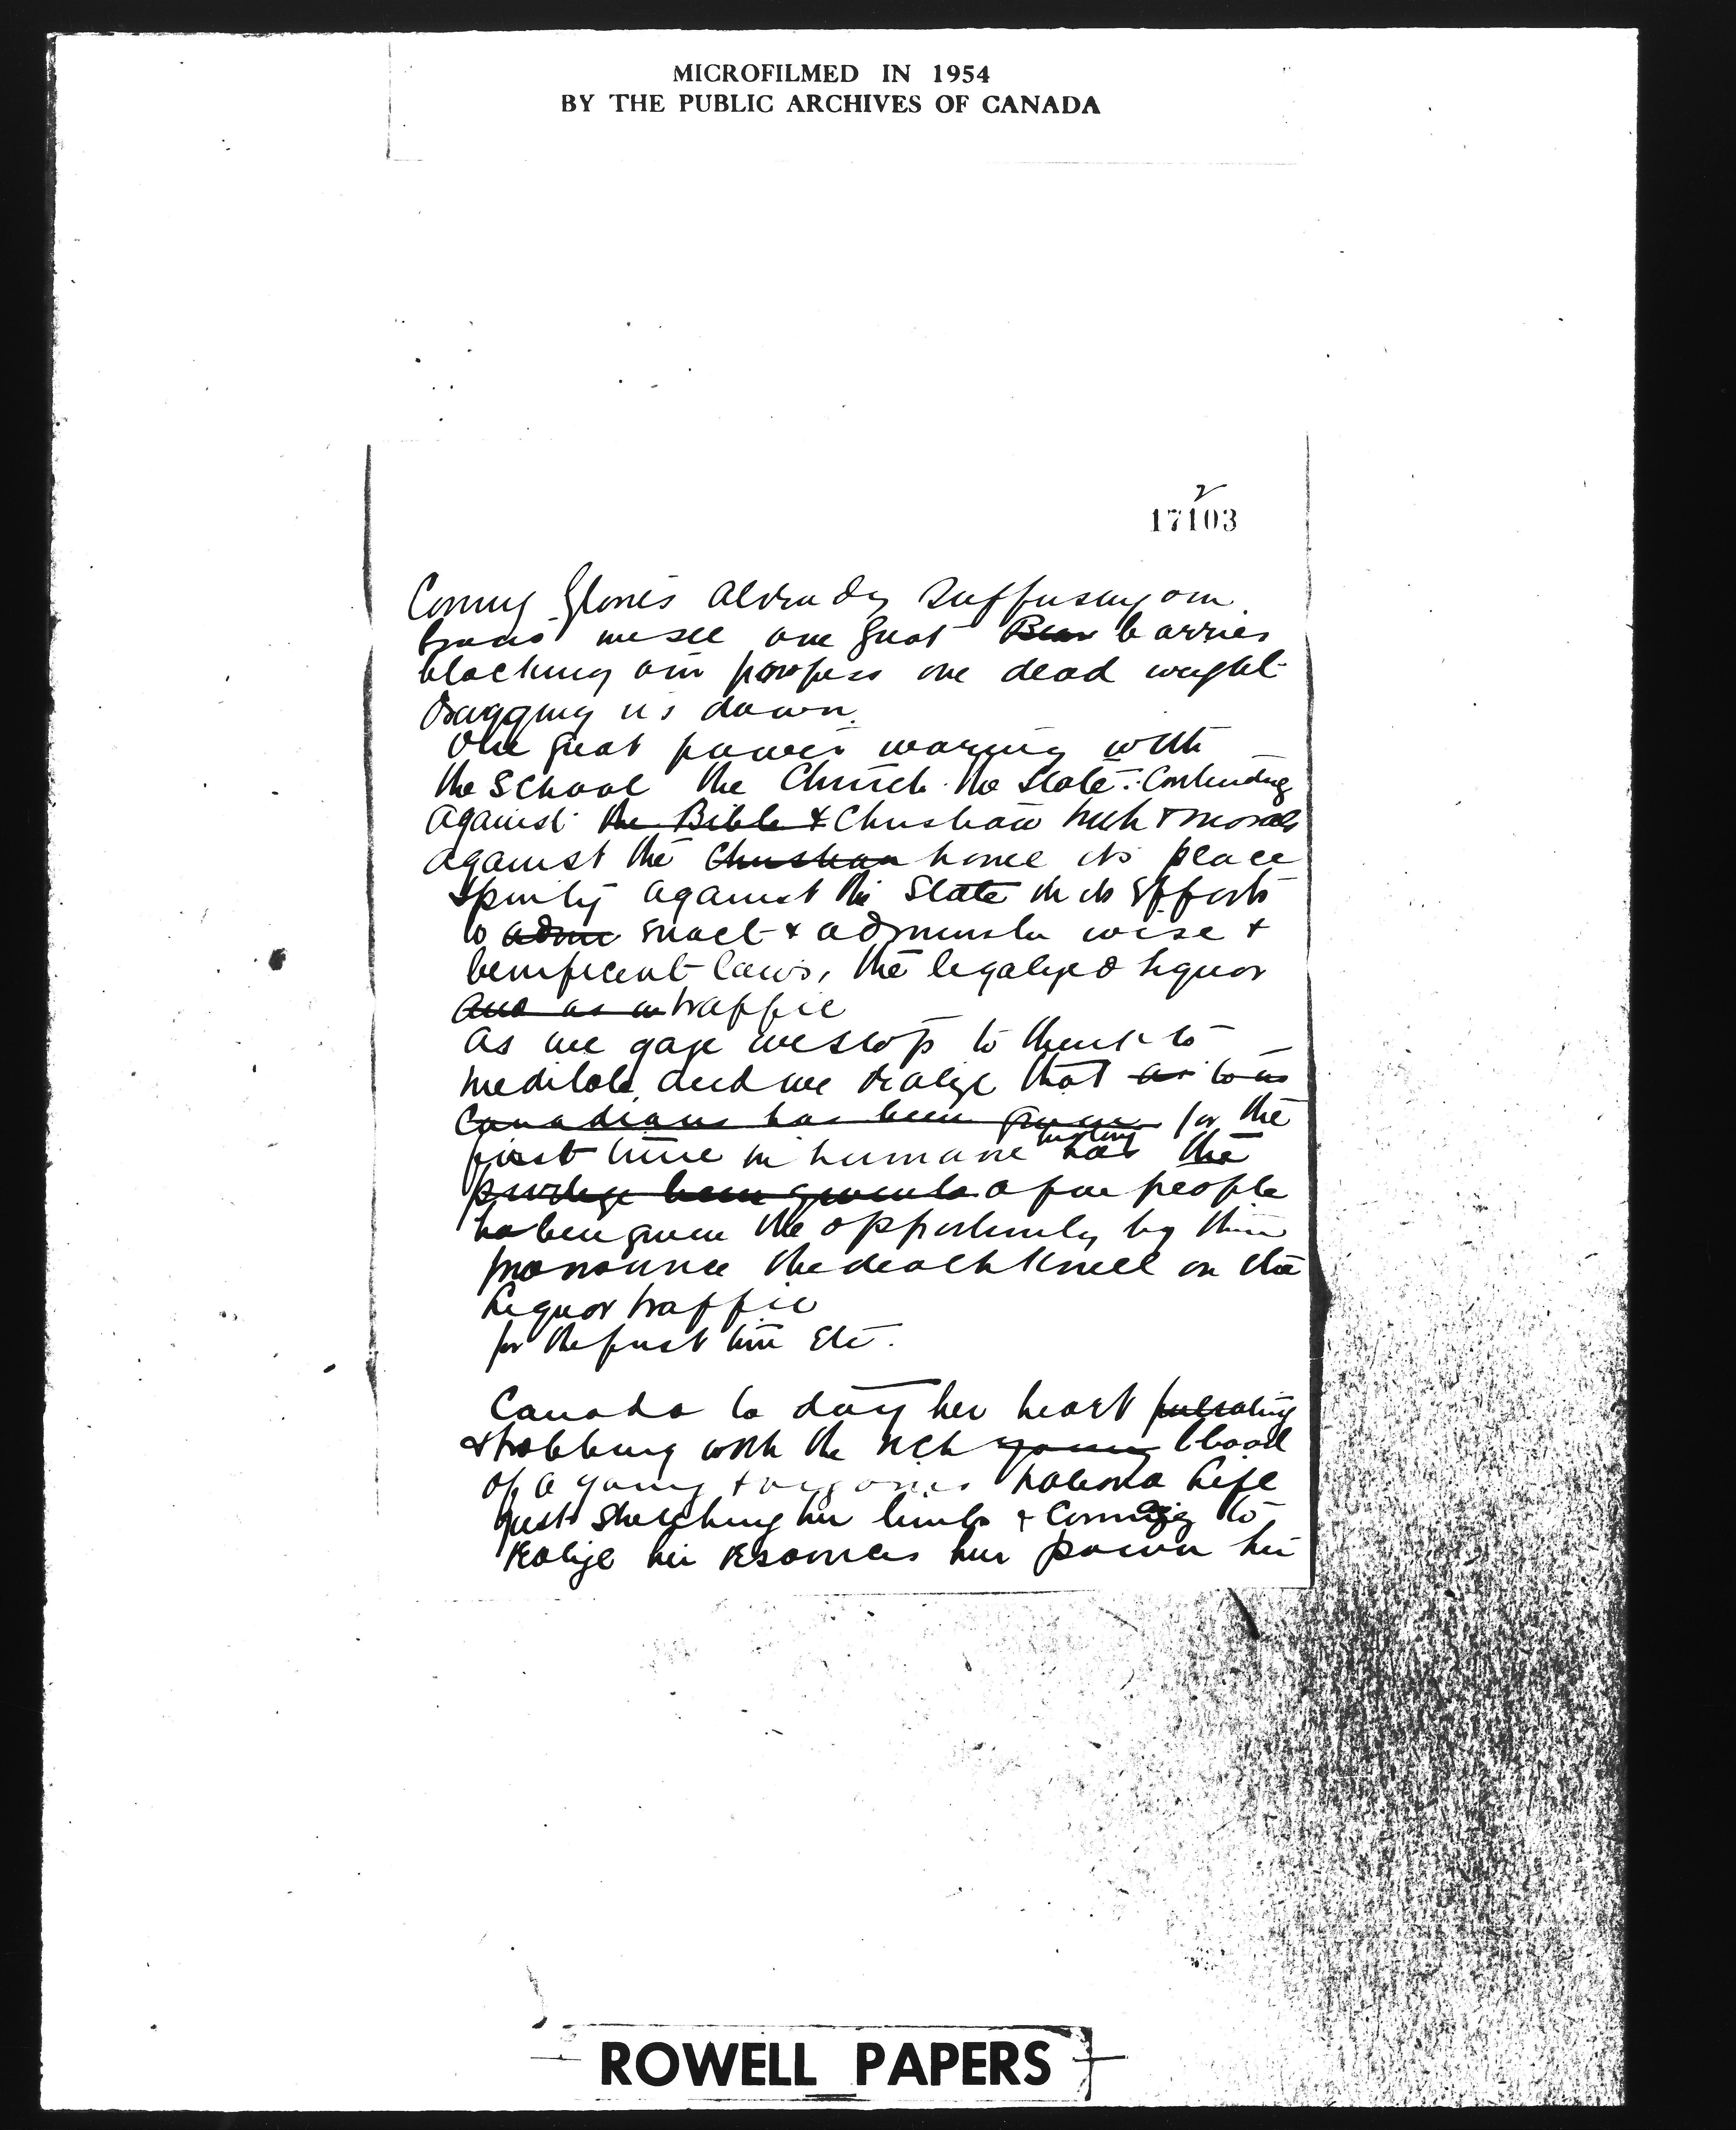 MICROFILMED IN 1954
BY THE PUBLIC ARCHIVES OF CANADA
2
17103
Coming glories already suffusing our
we see one great Bear barrier
blocking our progress one dead weight
dragging us down.
One great power warring with
the School the Church the State: Contending
against the Bible & Christian truth & morals
against the Christian home its peace
& purity against the State in its efforts
to admi enact & administer wise &
beneficent laws, the legalized liquor
and as a traffic
As we gaze we stop to think to
meditate, and we realize that as to us
Canadians has been given for the
first time in humane history has the
privilege been given to a free people
ha been given the opportunity by their
pronounce the death knell on the
liquor traffic
for the first time Etc.
Canada to day her heart pulsating
& throbbing with the rich young blood
of a young & vigorous national life
just stretching her limbs & coming to
realize her resources her power her
ROWELL PAPERS